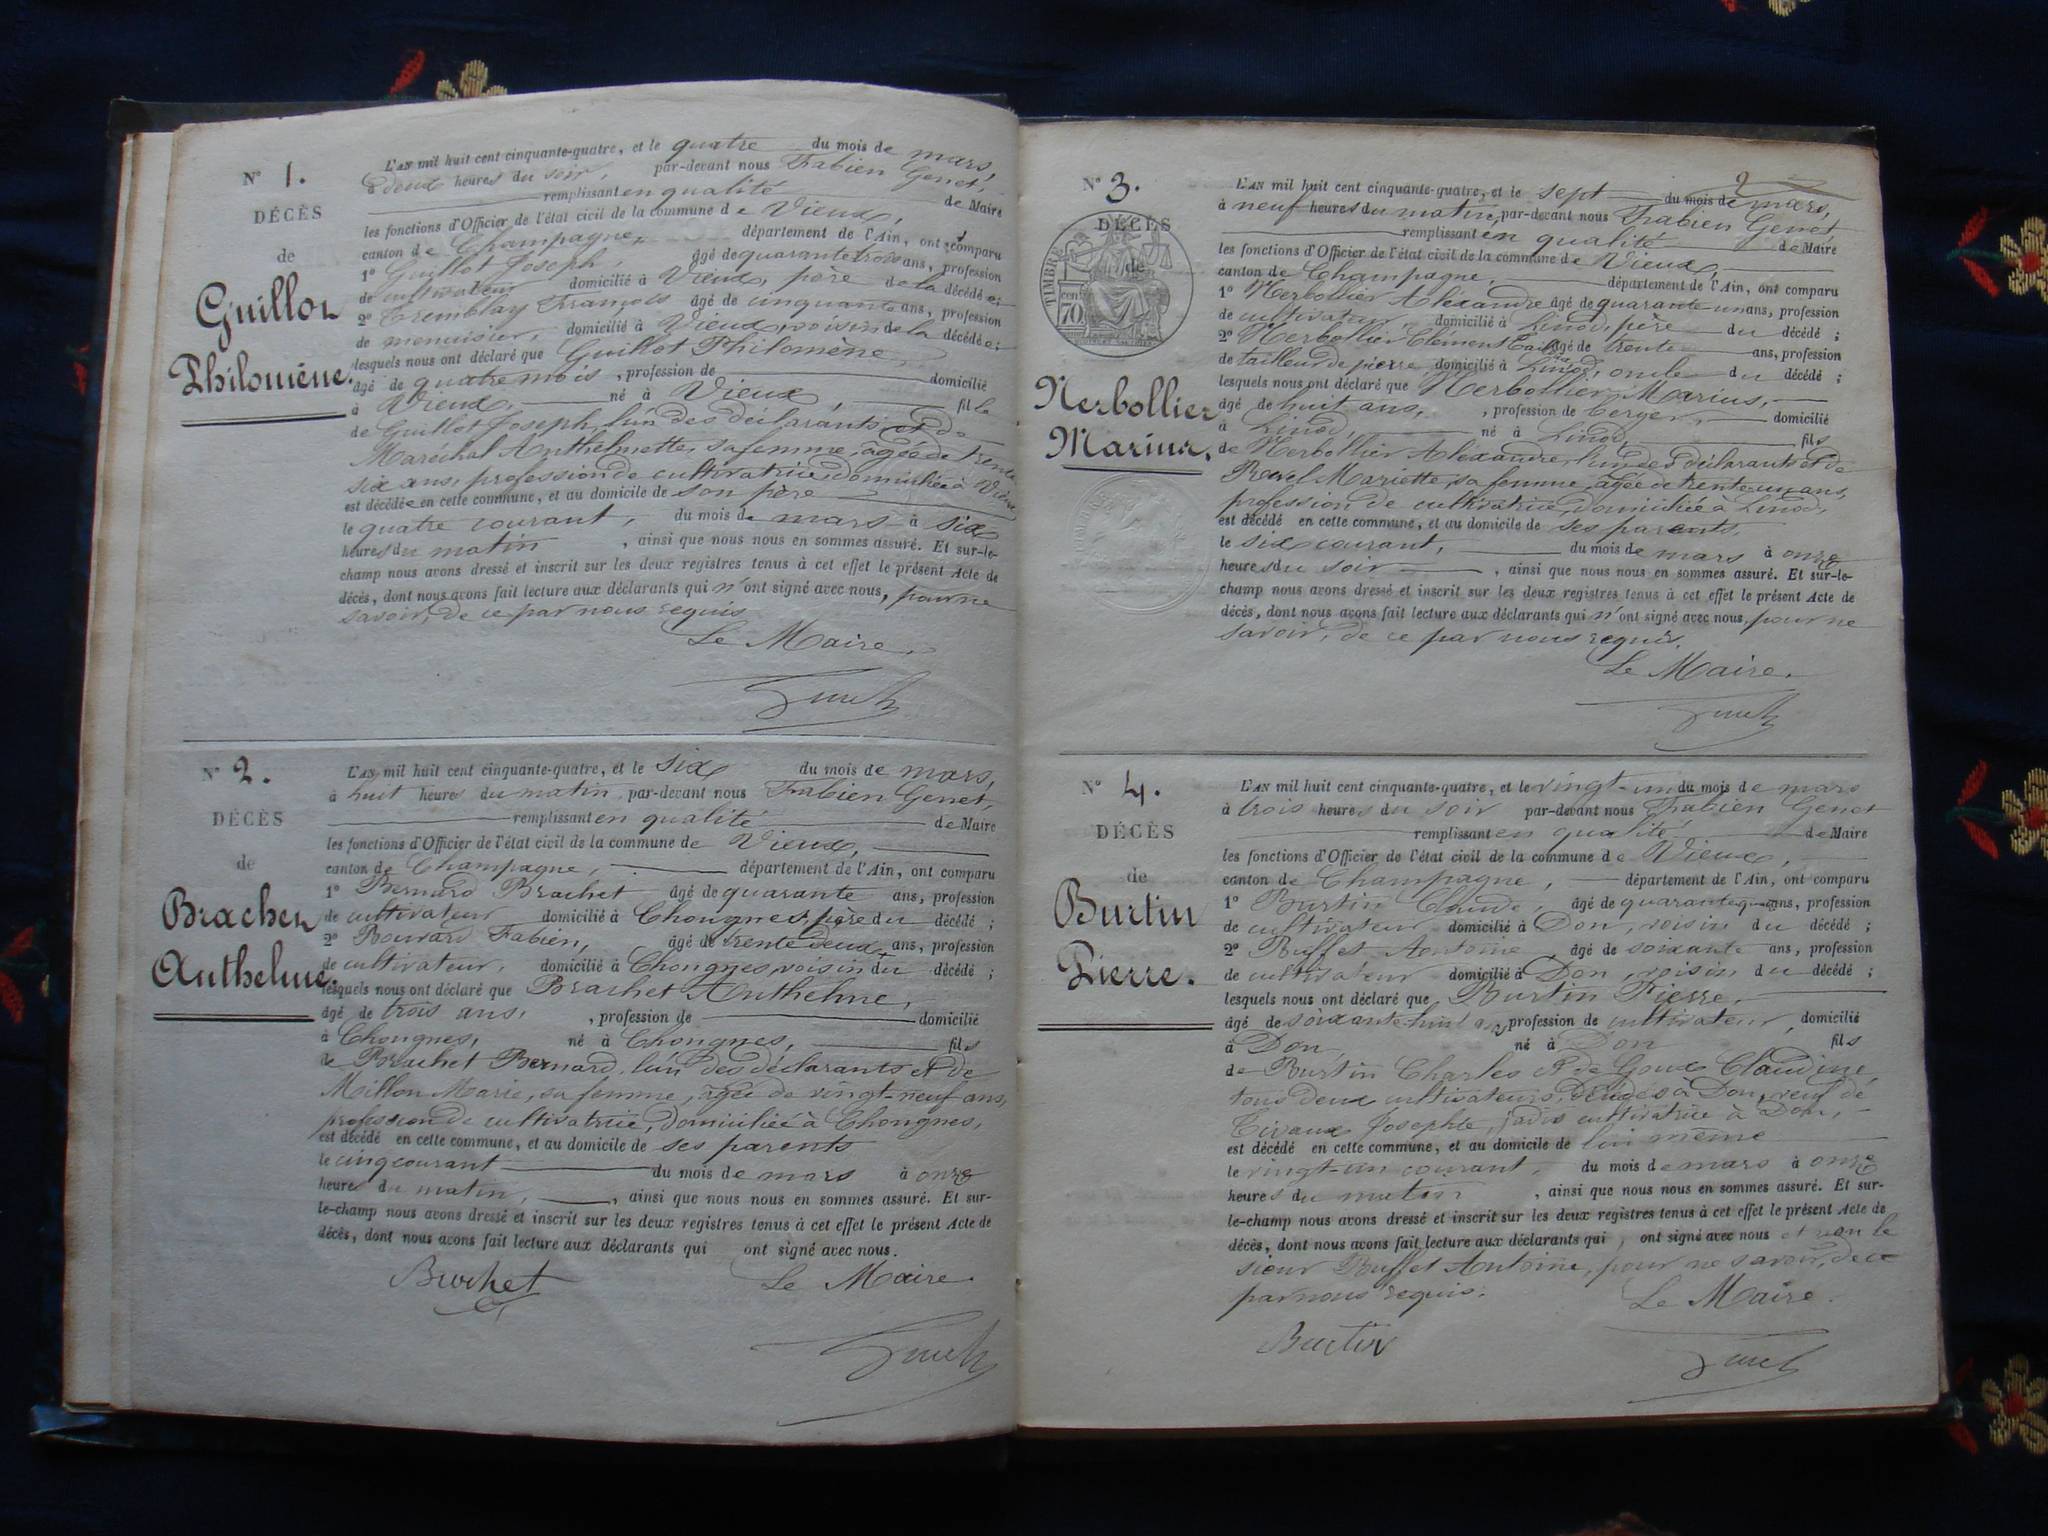 N° 1.
DÉCÈS
de
Guillot
Philomène.
L'AN mil huit cent cinquante-quatre, et le quatre du mois de mars,
à deux heures du soir, par-devant nous Fabien Genet,
remplissant en qualité de Maire
les fonctions d'Officier de l'état civil de la commune de Vieux,
canton de Champagne, département de l'Ain, ont comparu
1° Guillot Joseph, âgé de quarante trois ans, profession
de cultivateur domicilié à Vieux, père de la décédée;
2° Tremblay François âgé de cinquante ans, profession
de menuisier, domicilié à Vieux, voisin de la décédée;
lesquels nous ont déclaré que Guillot Philomène,
âgé de quatre mois, profession de domicilié
à Vieux, né à Vieux, fille
de Guillot Joseph, l'un des déclarants et de
Maréchal Anthelmette, sa femme, agée de trente
six ans, profession de cultivatrice, domiciliée à Vieux
est décédée en cette commune, et au domicile de son père
le quatre courant, du mois de mars à six
heures du matin, ainsi que nous nous en sommes assuré. Et sur-le-
champ nous avons dressé et inscrit sur les deux registres tenus à cet effet le présent Acte de
décès, dont nous avons fait lecture aux déclarants qui n'ont signé avec nous, pour ne
savoir, de ce par nous requis
Le Maire.
N° 2.
DÉCÈS
de
Brachet
Anthelme.
L'AN mil huit cent cinquante-quatre, et le six du mois de mars,
à huit heures du matin, par-devant nous Fabien Genet,
remplissant en qualité de Maire
les fonctions d'Officier de l'état civil de la commune de Vieux,
canton de Champagne, département de l'Ain, ont comparu
1° Bernard Brachet âgé de quarante ans, profession
de cultivateur domicilié à Chongnes, père du décédé;
2° Bouvard Fabien, âgé de trente deux ans, profession
de cultivateur, domicilié à Chongnes voisin du décédé;
lesquels nous ont déclaré que Brachet Anthelme,
âgé de trois ans, profession de domicilié
à Chongnes, né à Chongnes, fils
de Brachet Bernard, l'un des déclarants et de
Millon Marie, sa femme, agée de vingt-neuf ans,
profession de cultivatrice, domiciliée à Chongnes,
est décédé en cette commune, et au domicile de ses parents
le cinq courant du mois de mars à onze
heures du matin, ainsi que nous nous en sommes assuré. Et sur-
le-champ nous avons dressé et inscrit sur les deux registres tenus à cet effet le présent Acte de
décès, dont nous avons fait lecture aux déclarants qui ont signé avec nous.
Brachet Le Maire.
2
N° 3.
DÉCÈS
de
TIMBRE
cen 70
Nerbollier
Marius.
L'AN mil huit cent cinquante-quatre, et le sept du mois de mars,
à neuf heures du matin, par-devant nous Fabien Genet
remplissant en qualité de Maire
les fonctions d'Officier de l'état civil de la commune de Vieux,
canton de Champagne, département de l'Ain, ont comparu
1° Nerbollier Alexandre âgé de quarante un ans, profession
de cultivateur domicilié à Linod, père du décédé;
2° Nerbollier Clément âgé de trente ans, profession
de tailleur de pierre domicilié à Linod, oncle du décédé;
lesquels nous ont déclaré que Nerbollier Marius,
âgé de huit ans, profession de berger, domicilié
à Linod, né à Linod fils
de Nerbollier Alexandre, l'un des déclarants et de
Mariette, sa femme, agée de trente un ans,
profession de cultivatrice, domiciliée à Linod,
est décédé en cette commune, et au domicile de ses parents.
le six courant, du mois de mars à onze
heures du soir, ainsi que nous nous en sommes assuré. Et sur-le-
champ nous avons dressé et inscrit sur les deux registres tenus à cet effet le présent Acte de
décès, dont nous avons fait lecture aux déclarants qui n'ont signé avec nous, pour ne
savoir, de ce par nous requis.
Le Maire.
N° 4.
DÉCÈS
de
Burtin
Pierre.
L'AN mil huit cent cinquante-quatre, et le vingt-un du mois de mars
à trois heures du soir par-devant nous Fabien Genet
remplissant en qualité de Maire
les fonctions d'Officier de l'état civil de la commune de Vieux,
canton de Champagne, département de l'Ain, ont comparu
1° Burtin Claude, âgé de ans, profession
de cultivateur domicilié à Don, voisin du décédé;
2° Buffet Antoine âgé de soixante ans, profession
de cultivateur domicilié à Don, voisin du décédé;
lesquels nous ont déclaré que Burtin Pierre,
âgé de soixante-huit ans, profession de cultivateur, domicilié
à Don né à Don fils
de Burtin Charles et de Goux Claudine,
tous deux cultivateurs, décédés à Don, veuf de
Josephte, jadis cultivatrice à Don,
est décédé en cette commune, et au domicile de lui même
le vingt-un courant, du mois de mars à onze
heures du matin, ainsi que nous nous en sommes assuré. Et sur-
le-champ nous avons dressé et inscrit sur les deux registres tenus à cet effet le présent Acte de
décès, dont nous avons fait lecture aux déclarants qui ont signé avec nous et non le
sieur Buffet Antoine, pour ne savoir, de ce
par nous requis.
Le Maire.
Burtin